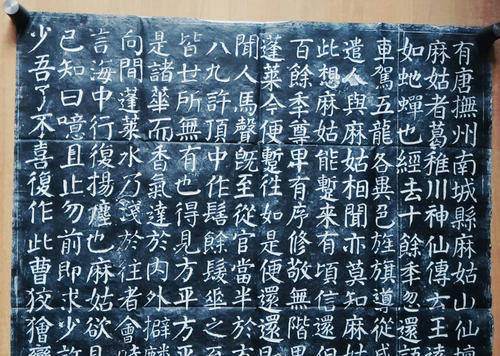 有唐撫州南城縣麻姑山仙壇
麻姑者葛稚川神仙傳云王遠
如虵蟬也經去十餘秊忽還語
車駕五龍各異色旌旗導從威
遣人與麻姑相聞亦莫知麻姑
此想麻姑能蹔來有頃信還但
百餘秊尊卑有序修敬無階思
蓬萊今便蹔往如是便還還
聞人馬聲既至從官當半於
八九許頂中作髻餘髮垂之至
皆世所無有也得見方平方平
是諸華而香氣達於內外擗麟
向間蓬萊水乃淺於往者會時
言海中行復揚塵也麻姑欲見
已知曰噫且止勿前即求少許
少吾了不喜復作此曹狡獪變